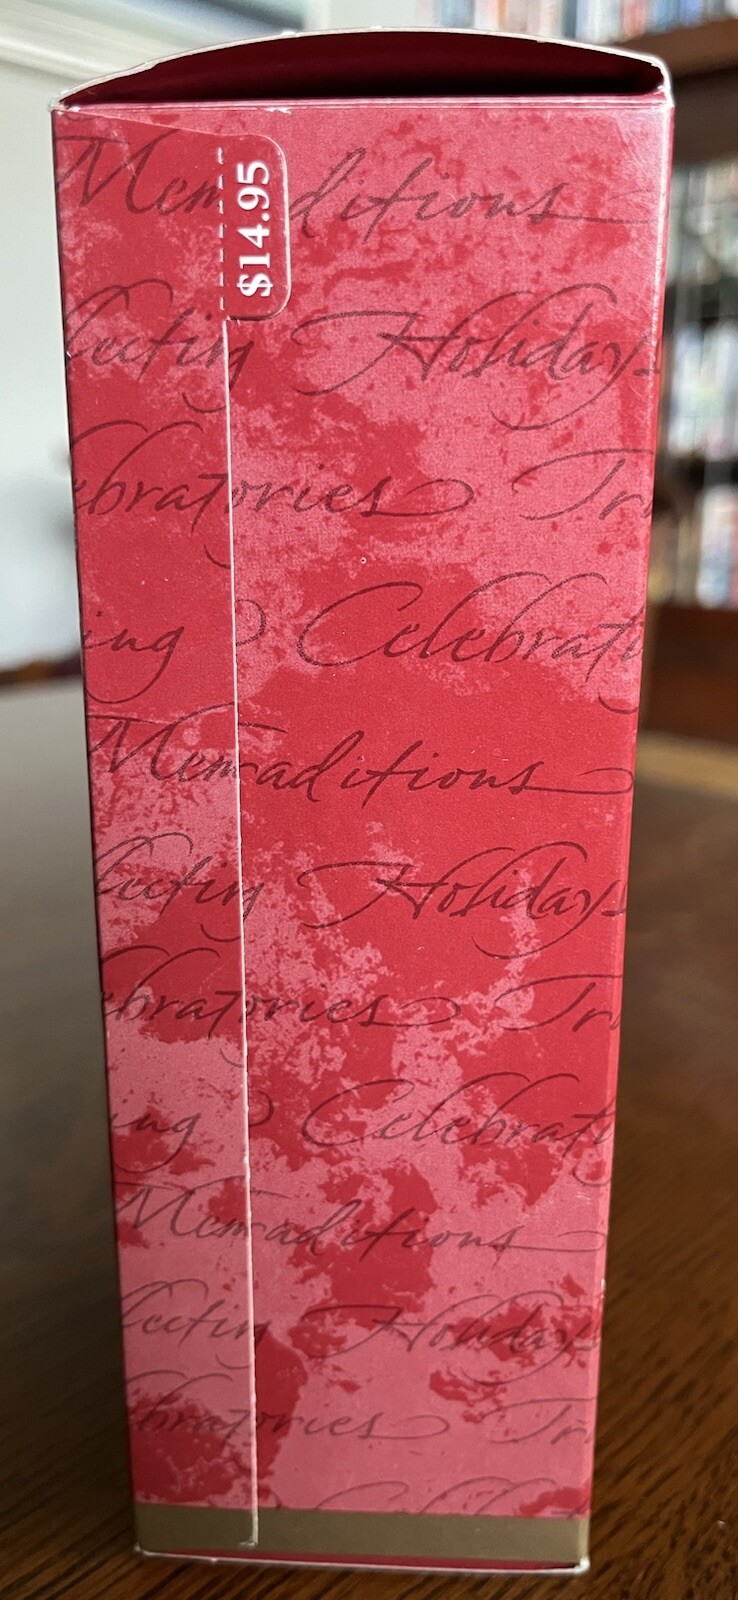 $14.95
Mem aditions
lecting Holidays
ebratories Tr
ing Celebrati
Memraditions
lecting Holidays
ebratories Tr
ing Celebrati
Memraditions
lecting Holidays
ebratories Tr